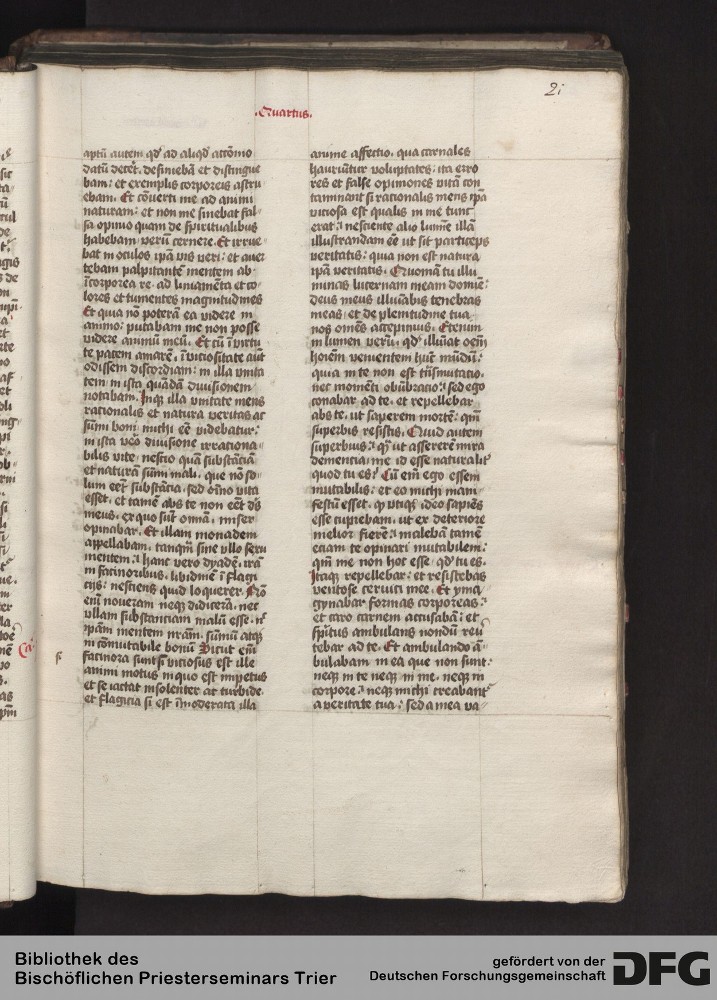 2i
.Quartus.
aptū autem qd' ad aliqd' accōmo
datū decēt. definiebā et distingue
bam: et exemplis corporeis astru
ebam. Et cōverti me ad animi
naturam: et non me sinebat fal-
sa opinio quam de spiritualibus
habebam verū cernere. Et irrue-
bat in oculos ipā vis veri: et aver
tebam palpitantē mentem ab
īcorporea re. ad liniamēta et co-
lores et tumentes magnitudines
Et quia nō poterā ea videre in
animo: putabam me non posse
videre animū meū. Et cū ī virtu
te pacem amarē. ī viciositate aūt
odissem discordiam: in illa vnita
tem in ista quādā divisionem
notabam. Inqȝ illa vnitate mens
rationalis et natura veritas ac
sūmi boni michi eē videbatur:
in ista vēo divisione irrationa-
bilis vite. nescio quā substāciā
et naturā sūmi mali. que nō so-
lum eēt substācia. sed oīno vita
esset. et tamē abs te non eēt dš
meus. ex quo sūt omnia. miser
opinabar. Et illam monadem
appellabam. tanqm̄ sine vllo sexu
mentem: hanc vero dyadē. irā
in facinoribus. libidinē ī flagi
cijs: nesciens quid loquerer. Nō
enī noveram neqȝ didicerā. nec
vllam substanciam malū esse. nec
ipām mentem nr̄am. sūmū atqȝ
in cōmutabile bonū Sicut em̄
facinora sunt si viciosus est ille
animi motus in quo est impetus
et se iactat insolenter ac turbide.
et flagicia si est īmoderata illa
anime affectio. qua carnales
hauriūtur voluptates: ita erro
res et false opiniones vitā con
taminant si rationalis mens ipā
viciosa est qualis in me tunc
erat: nesciente alio lumīe illā
illustrandam eē ut sit particeps
veritatis: quia non est natura
ipā veritatis. Quoniā tu illu
minas lucernam meam domīe:
deus meus illuīabis tenebras
meas: et de plenitudine tua.
nos omēs accepimus. Etenim
in lumen verū. qd' illuīat oēm
hoīem venientem huc mūdū:
quia in te non est trāsmutatio.
nec momēti obūbratio: sed ego
conabar ad te. et repellebar
abs te. ut saperem mortē: qm̄
superbis resistis. Quid autem
superbius: qȝ ut assererē mira
demencia. me id esse naturalit'
quod tu es: Cū em̄ ego essem
mutabilis: et eo michi mani-
festū esset. ideo sapiēs
esse cupiebam. ut ex deteriore
melior fierē: malebā tamē
eciam te opinari mutabilem:
qm̄ me non hoc esse. qd' tu es.
Itaqȝ repellebar: et resistebas
ventose cervici mee. Et yma
gynabar formas corporeas:
et caro carnem accusabā: et
sp̄itus ambulans nondū rev
tebar ad te. Et ambulando ā-
bulabam in ea que non sunt:
neqȝ in te neqȝ in me. neqȝ in
corpore: neqȝ michi creabant'
a veritate tua: sed a mea va-
Bibliothek des
Bischöflichen Priesterseminars Trier
gefördert von der
Deutschen Forschungsgemeinschaft
DFG